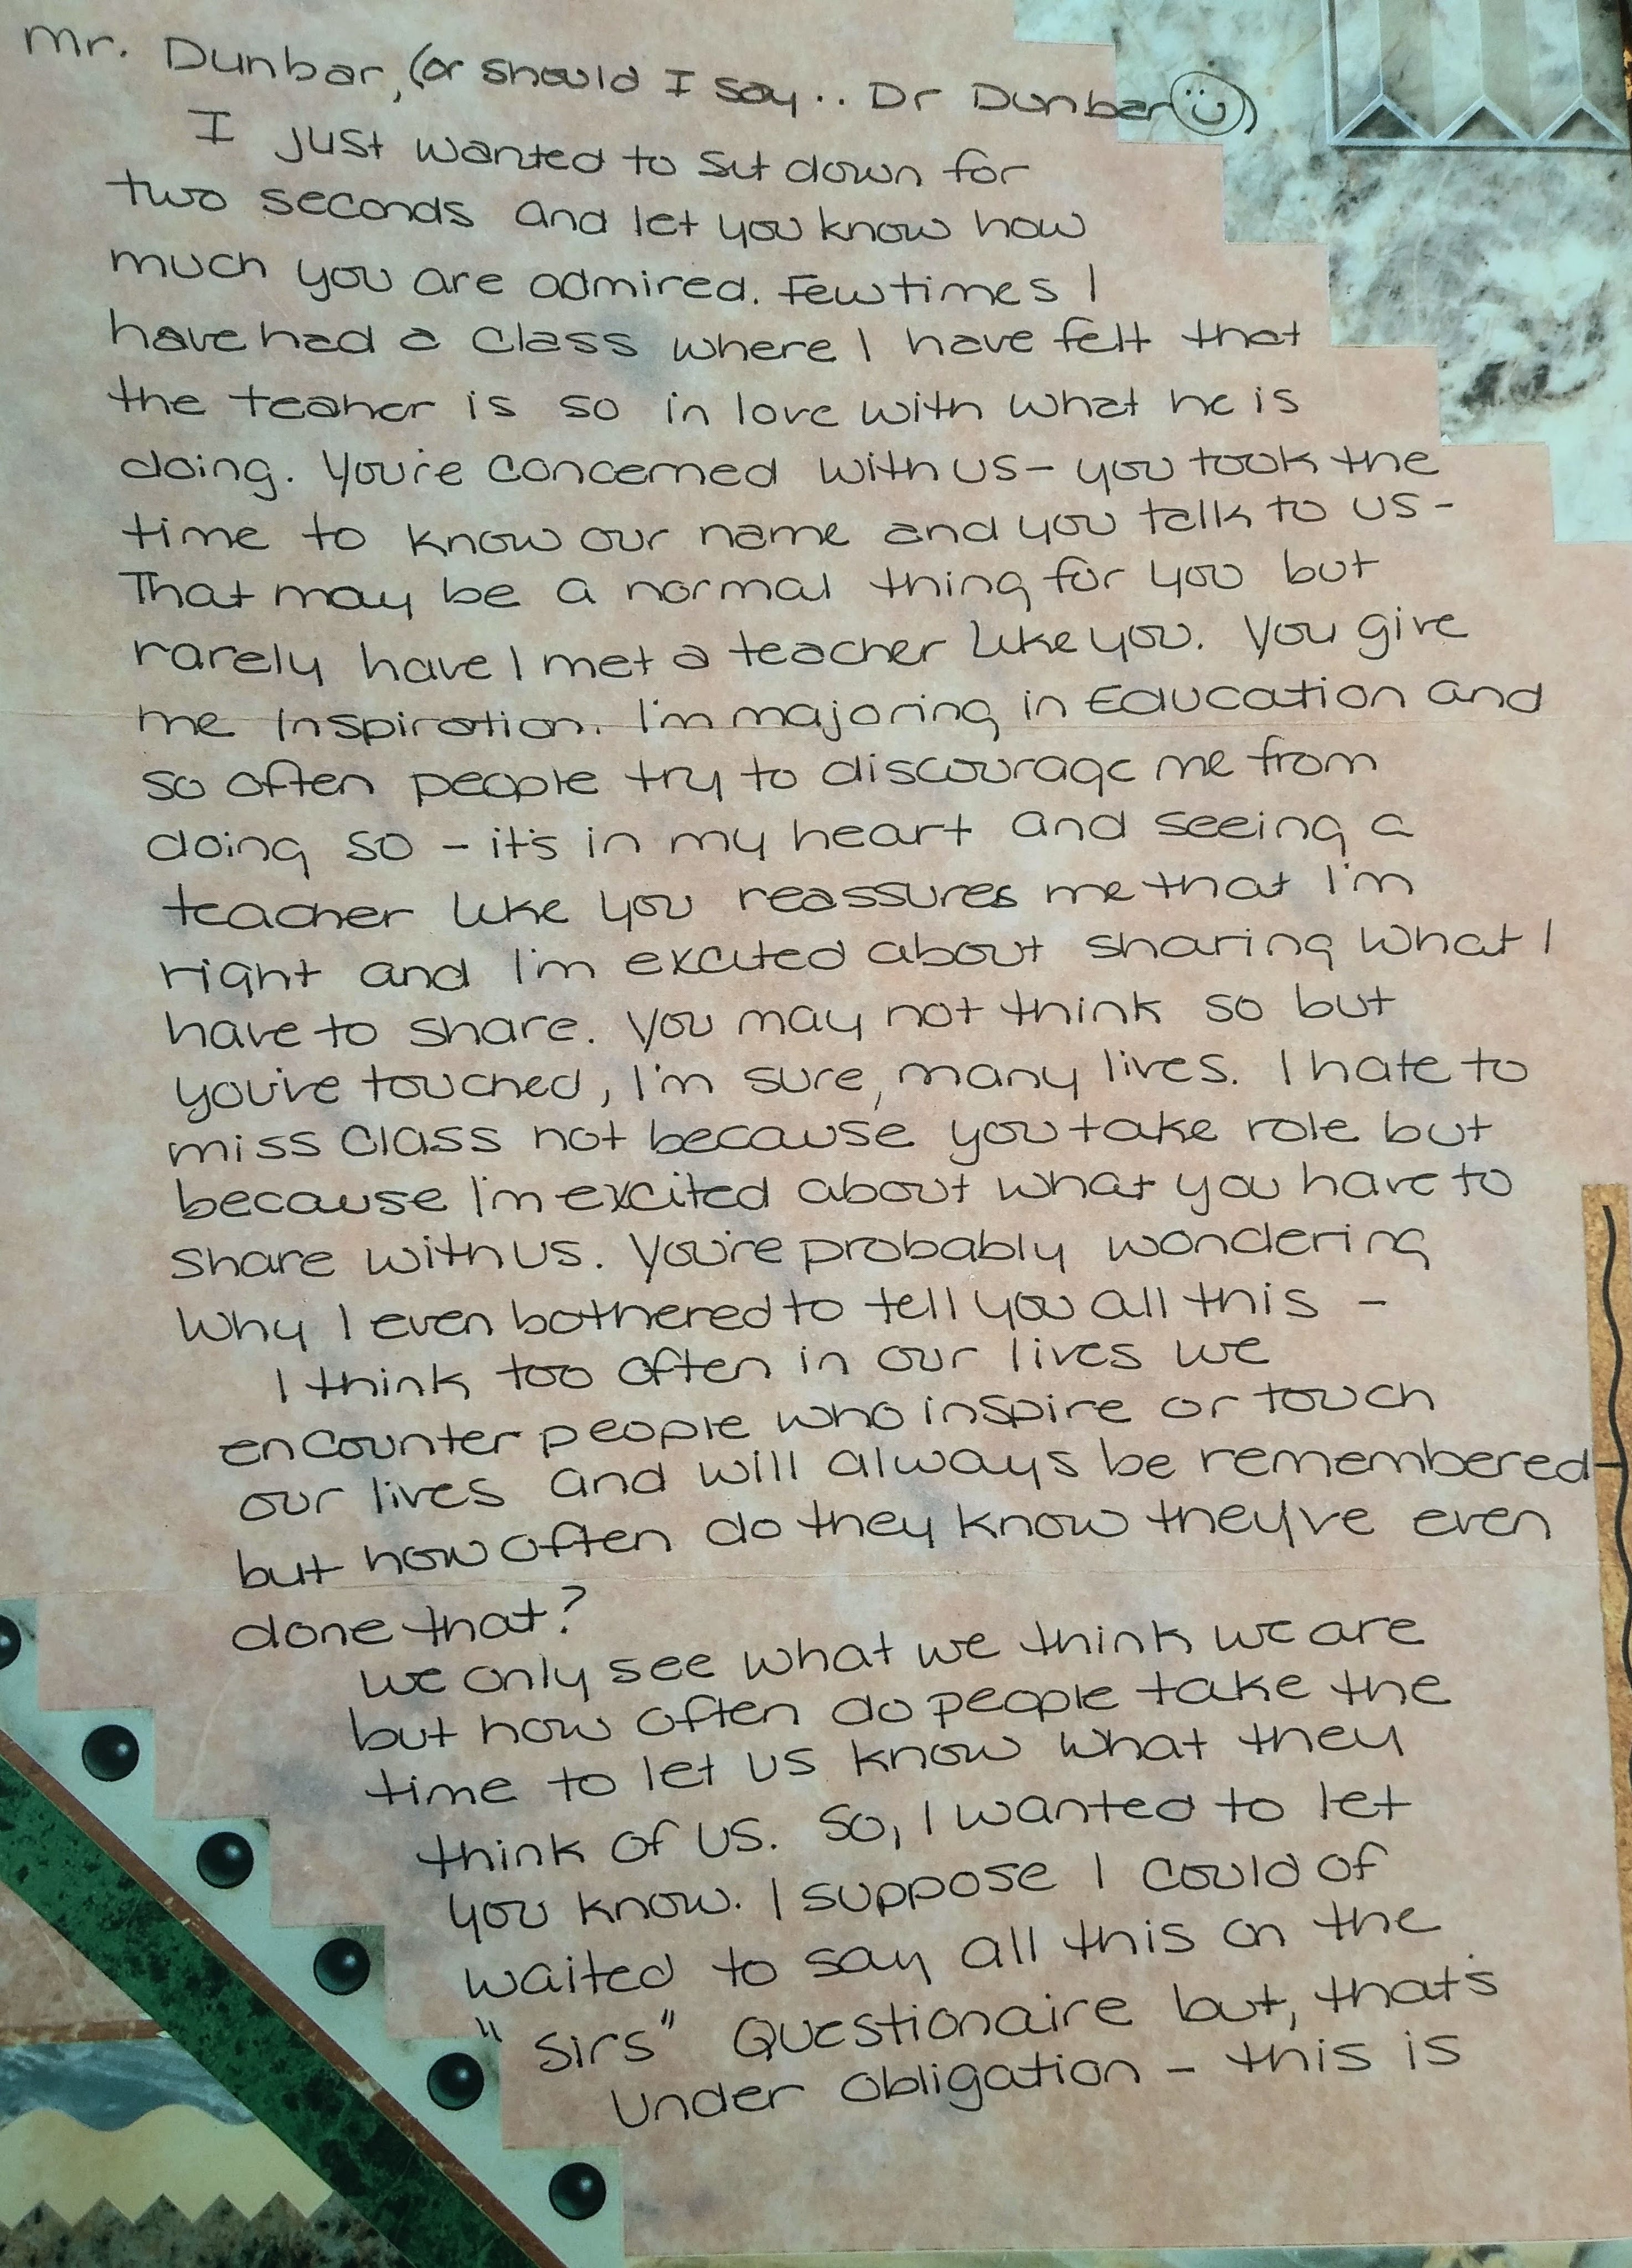 Mr. Dunbar, (or should I say.. Dr Dunbar )
I just wanted to sit down for
two seconds and let you know how
much you are admired. Few times I
have had a class where I have felt that
the teaher is so in love with what he is
doing. You're concerned with us- you took the
time to know our name and you talk to us-
That may be a normal thing for you but
rarely have I met a teacher like you. You give
me Inspiration. I'm majoring in Education and
so often people try to discourage me from
doing so - it's in my heart and seeing a
teacher like you reassures me that I'm
right and I'm excited about sharing what I
have to share. You may not think so but
you've touched, I'm sure, many lives. I hate to
miss class not because you take role but
because I'm excited about what you have to
share with us. You're probably wondering
why I even bothered to tell you all this -
I think too often in our lives we
encounter people who inspire or touch
our lives and will always be remembered-
but how often do they know they've even
done that?
we only see what we think we are
but how often do people take the
time to let us know what they
think of us. So, I wanted to let
you know. I suppose I could of
waited to say all this on the
"Sirs" Questionaire but, that's
under obligation - this is